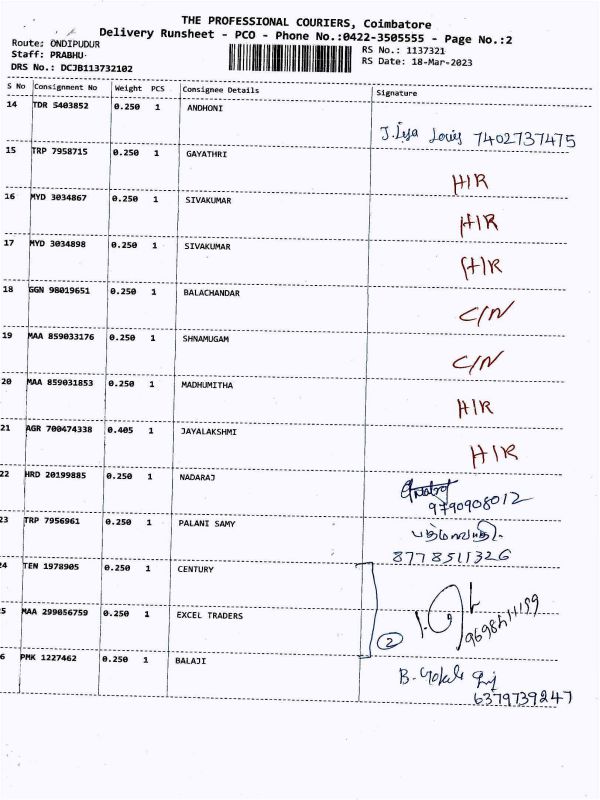 THE PROFESSIONAL COURIERS, Coimbatore
Delivery Runsheet - PCO - Phone No.:0422-3505555 - Page No.:2
Route: ONDIPUDUR
Staff: PRABHU
DRS No.: DCJB113732102
RS No.: 1137321
RS Date: 18-Mar-2023
S No Consignment No Weight PCS Consignee Details Signature
14 TDR 5403852 0.250 1 ANDHONI
J. Louis 7402737475
15 TRP 7958715 0.250 1 GAYATHRI
H/R
16 MYD 3034867 0.250 1 SIVAKUMAR
H/R
17 MYD 3034898 0.250 1 SIVAKUMAR
H/R
18 GGN 98019651 0.250 1 BALACHANDAR
C/N
19 MAA 859033176 0.250 1 SHNAMUGAM
C/N
20 MAA 859031853 0.250 1 MADHUMITHA
H/R
21 AGR 700474338 0.405 1 JAYALAKSHMI
H/R
22 HRD 20199885 0.250 1 NADARAJ
9790908012
23 TRP 7956961 0.250 1 PALANI SAMY
8778511326
24 TEN 1978905 0.250 1 CENTURY
5 MAA 299056759 0.250 1 EXCEL TRADERS
2
6 PMK 1227462 0.250 1 BALAJI
B. 
6379739247